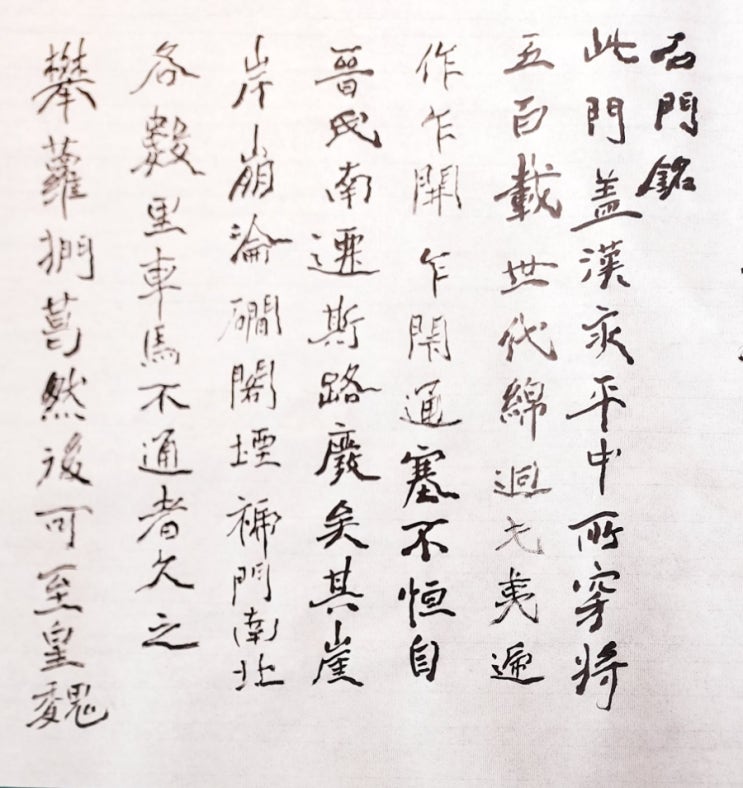 石門銘
此門盖漢永平中所穿將
五百載世代綿迥戎夷遞
作乍開乍閉通塞不恒自
晉氏南遷斯路廢矣其崖
岸崩淪磵閣堙褫門南北
各數里車馬不通者久之
攀蘿捫葛然後可至皇魏